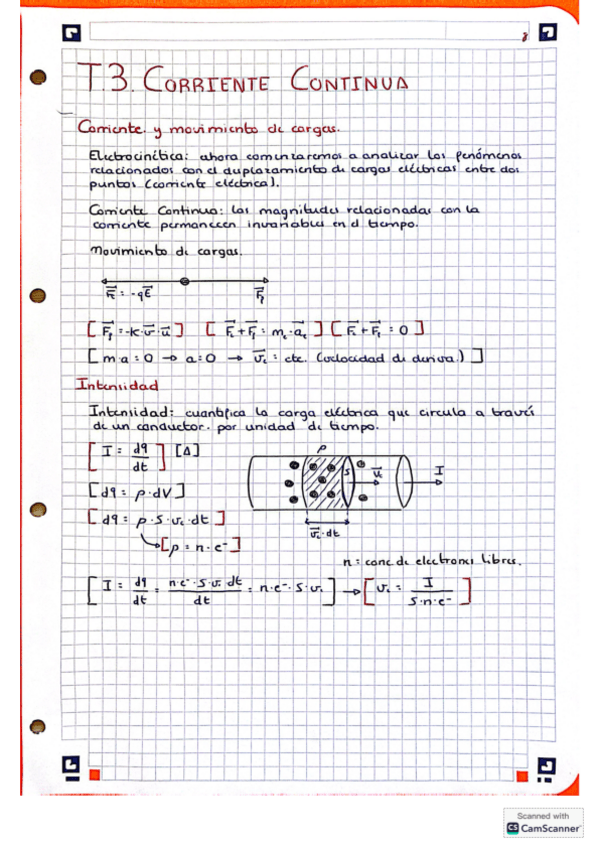 8
T.3. CORRIENTE CONTINUA
Corriente y movimiento de cargas.
Electrocinética: ahora comenzaremos a analizar los fenómenos
relacionados con el desplazamiento de cargas eléctricas entre dos
puntos (corriente eléctrica).
Corriente Continua: las magnitudes relacionadas con la
corriente permanecen invariables en el tiempo.
Movimiento de cargas.
F⃗ₑ = -qE⃗ F⃗f
[F⃗f = -K·v⃗·u⃗] [F⃗ₑ + F⃗f = mₑ·a⃗ₑ] [F⃗ₑ + F⃗f = 0]
[m·a = 0 → a = 0 → v⃗ₑ = cte. (velocidad de deriva.)]
Intensidad
Intensidad: cuantifica la carga eléctrica que circula a través
de un conductor. por unidad de tiempo.
[I = dq/dt] [A]
ρ S v⃗ₑ I
[dq = ρ·dV]
[dq = ρ·S·vₑ·dt]
v⃗ₑ·dt
[ρ = n·e⁻]
n = conc de electrones libres.
[I = dq/dt = n·e⁻·S·vₑ dt/dt = n·e⁻·S·vₑ] → [vₑ = I/S·n·e⁻]
Scanned with
CS CamScanner